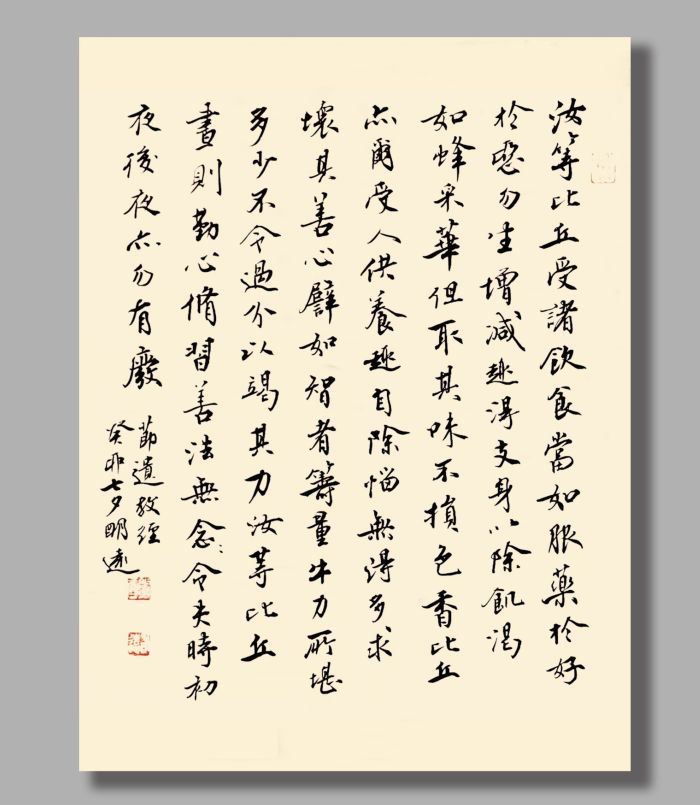 汝等比丘受諸飲食當如服藥於好
於惡勿生增減趣得支身以除飢渴
如蜂采華但取其味不損色香比丘
亦爾受人供養趣自除惱無得多求
壞其善心譬如智者籌量牛力所堪
多少不令過分以竭其力汝等比丘
晝則勤心脩習善法無念令失時初
夜後夜亦勿有廢
節遺教經
癸卯七夕明遠